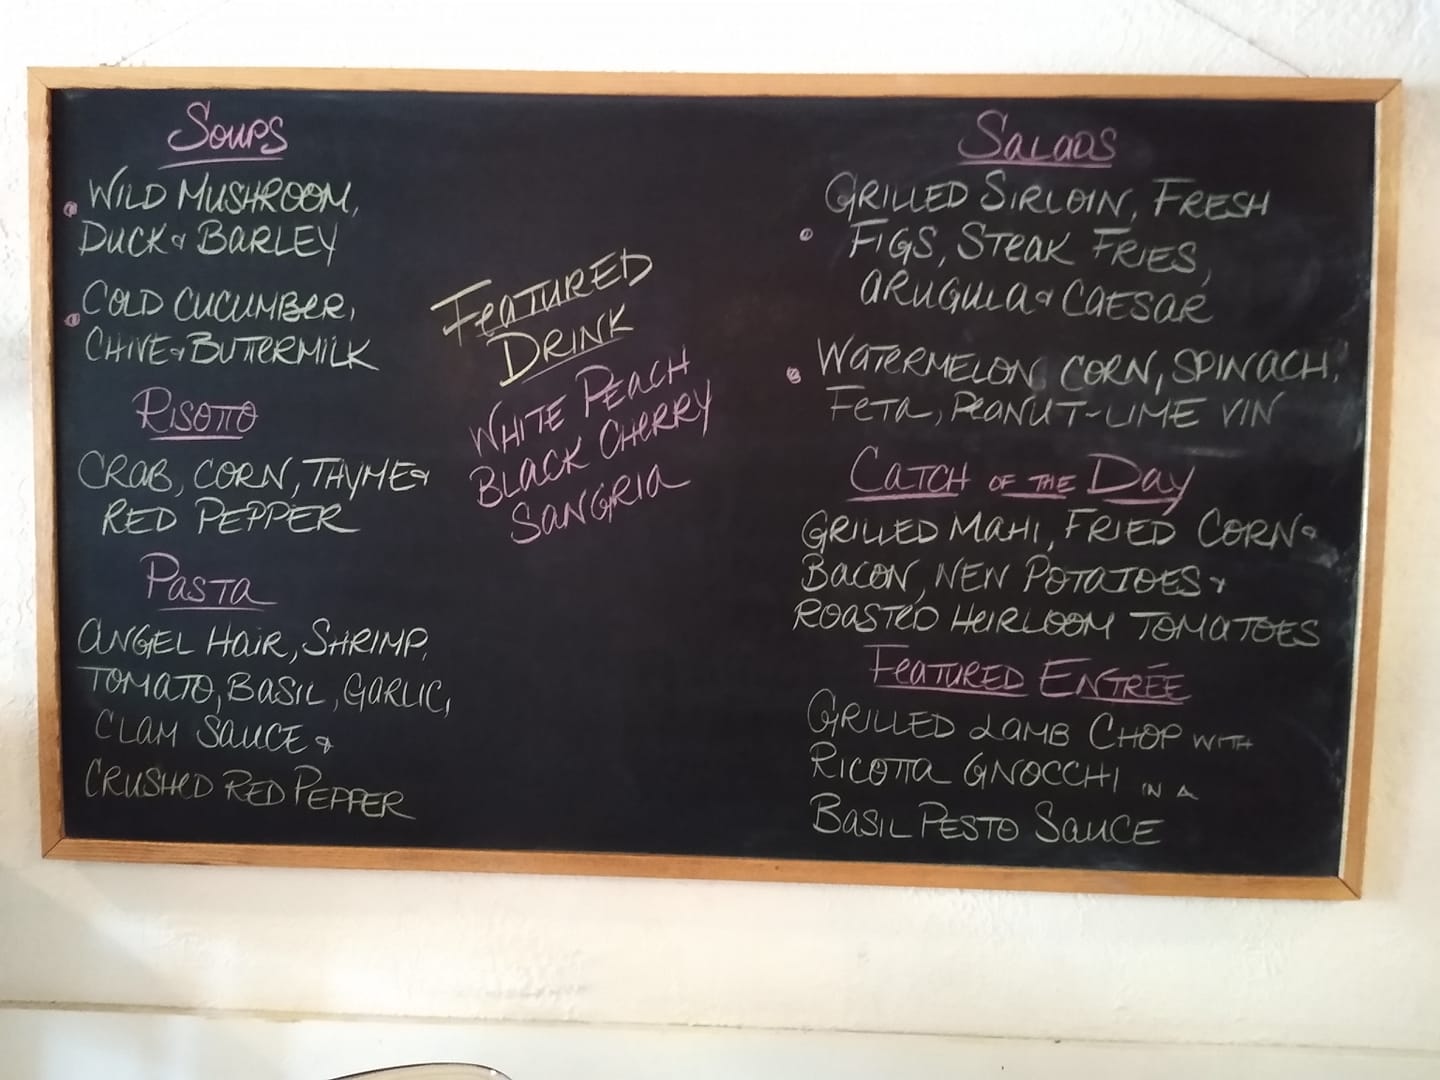 Soups
WILD MUSHROOM,
DUCK & BARLEY
COLD CUCUMBER,
CHIVE & BUTTERMILK
RISOTTO
CRAB, CORN, THYME &
RED PEPPER
PASTA
ANGEL HAIR, SHRIMP,
TOMATO, BASIL, GARLIC,
CLAM SAUCE &
CRUSHED RED PEPPER
FEATURED
DRINK
WHITE PEACH
BLACK CHERRY
SANGRIA
SALADS
GRILLED SIRLOIN, FRESH
FIGS, STEAK FRIES,
ARUGULA & CAESAR
WATERMELON, CORN, SPINACH,
FETA, PEANUT-LIME VIN
CATCH OF THE DAY
GRILLED MAHI, FRIED CORN &
BACON, NEW POTATOES &
ROASTED HEIRLOOM TOMATOES
FEATURED ENTRÉE
GRILLED LAMB CHOP WITH
RICOTTA GNOCCHI IN A
BASIL PESTO SAUCE